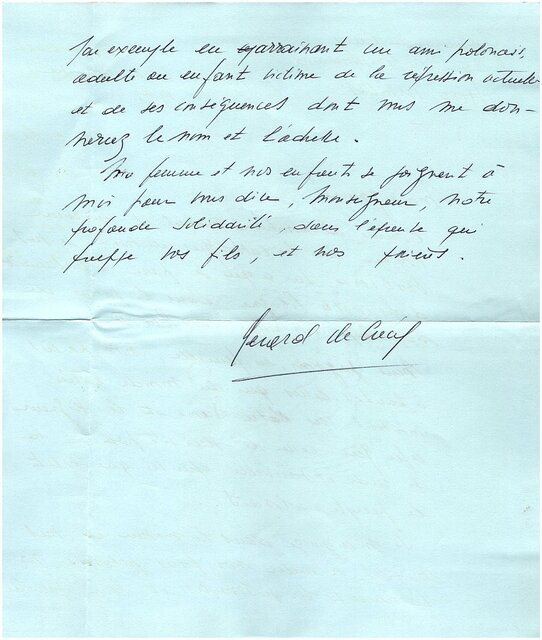 par exemple en parrainant un ami polonais,
adulte ou enfant victime de la répression actuelle
et de ses conséquences dont vous me don-
neriez le nom et l'adresse.
Ma femme et nos enfants se joignent à
moi pour vous dire, Monseigneur, notre
profonde solidarité, dans l'épreuve qui
frappe vos fils, et nos prières.
Gérard de